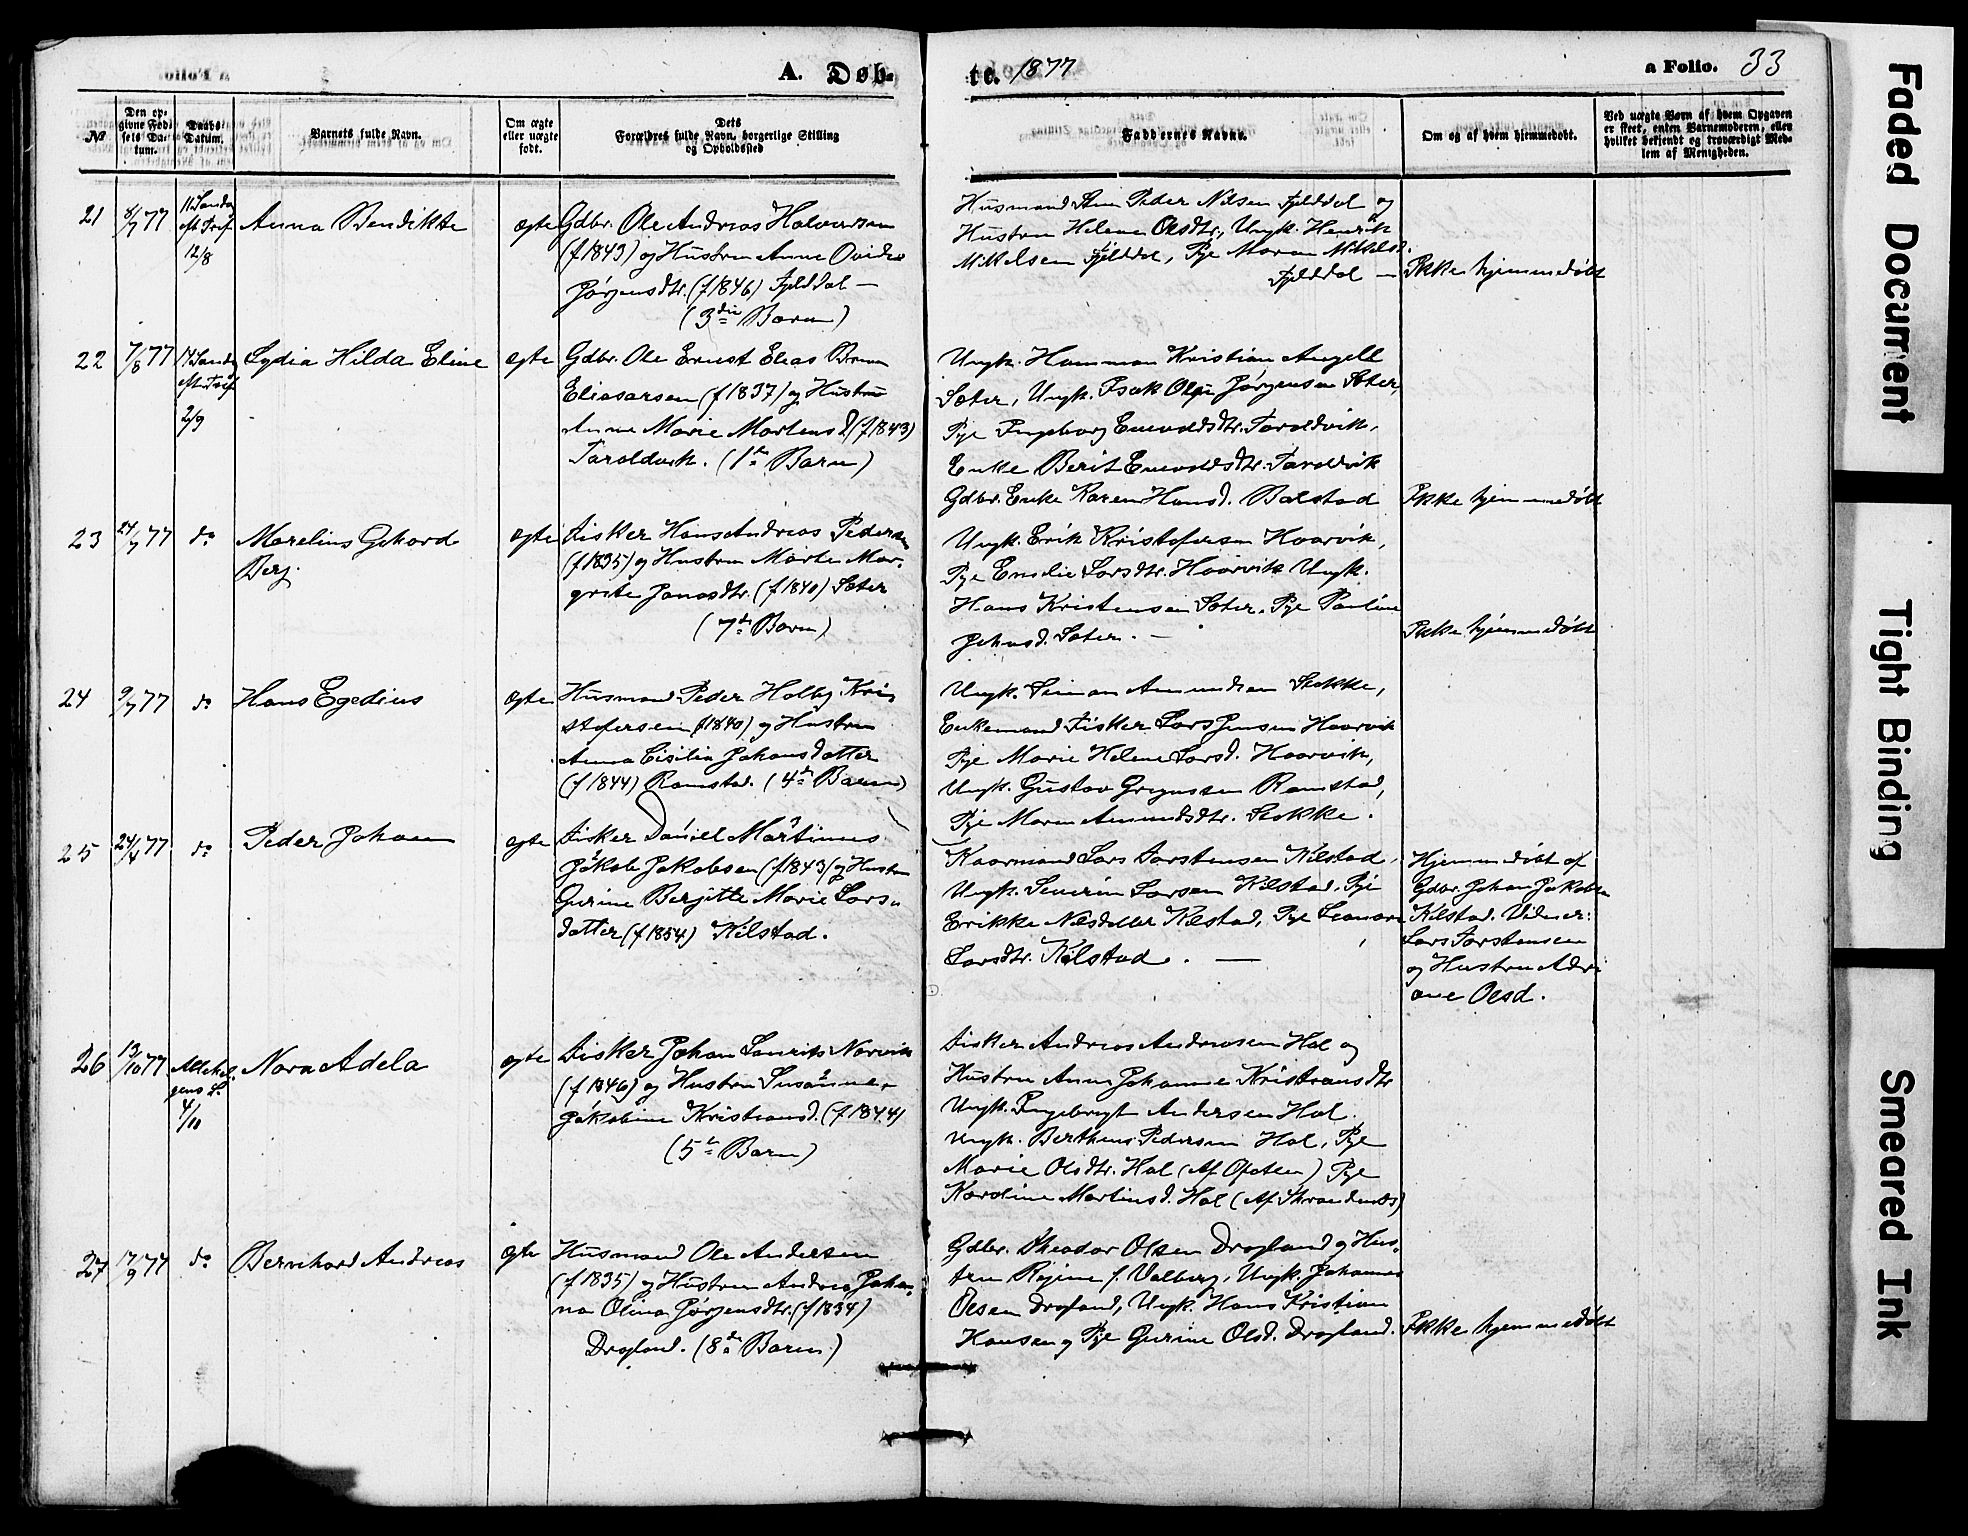 A. Døb-
te. 1877
a Folio. 33
№
Den op-
givne Fød-
sels Da-
tum.
Daabs
Datum.
Barnets fulde Navn.
Om ægte
eller uægte
født.
Dets
Forældres fulde Navn, borgerlige Stilling
og Opholdssted
Faddernes Navne.
Om og af hvem hjemmedøbt.
Ved uægte Børn af hvem Opgaven
er skeet, enten Barnemoderen, eller
hvilket bekjendt og troværdigt Med-
lem af Menigheden.
21
8/7 77
11 Sønda
eft Tref
12/8
Anna Bendikte
ægte
Gdbr. Ole Andreas Halvorsen
(f 1843) og Hustru Anne Ovidia
Jørgensdtr. (f 1846) Fjelddal —
(3die Barn)
Husmand Peder Nilsen Fjelddal og
Hustru Helene Olsdtr., Ungk. Henrik
Mikkelsen Fjelddal, Pige Maren Mikkelsd.
Fjelddal —
Ikke hjemmedøbt
22
7/8 77
14 Sønda
eft. Tref
2/9
Lydia Hilda Eline
ægte
Gdbr. Ole Ernst Elias Brun
Eliasarsen (f 1837) og Hustru
Anne Marie Martensd (f 1843)
Taroldvik. (1te Barn)
Ungk. Hamman Kristian Angell
Sæter, Ungk. Isak Olai Jørgensen Sæter,
Pige Ingeborg Enevoldsdtr. Taroldvik,
Enke Berit Enevoldsdtr. Taroldvik
Gdbr. Enke Karen Hansd. Balstad
Ikke hjemmedøbt
23
24/7 77
do
Marelius Gehard
Berg.
ægte
Fisker Hans Andreas Pedersen
(f 1835) og Hustru Marte Mar-
grete Jonasdtr. (f 1840) Sæter
(7de Barn)
Ungk. Erik Kristofersen Haarvik,
Pige Emilie Larsdtr. Haarvik Ungk.
Hans Kristensen Sæter, Pige Pauline
Johnsd. Sæter. —
Ikke hjemmedøbt
24
9/7 77
do
Hans Egedius
ægte
Husmand Peder Holby Kri-
stofersen (f 1840) og Hustru
Anna Cisilia Johansdatter
(f 1844) Ramstad. (4de Barn)
Ungk. Simon Amundsen Stokke,
Enkemand Fisker Lars Jensen Haarvik
Pige Marie Helene Larsd. Haarvik,
Ungk. Gustav Gregussen Ramstad,
Pige Maren Amundsdtr. Stokke.
25
24/4 77
do
Peder Johan
ægte
Fisker Daniel Martinus
Jakob Jakobsen (f 1843) og Hustru
Gurine Bergitte Marie Lars-
datter (f 1854) Kilstad.
Kaarmand Lars Torstensen Kilstad,
Ungk. Severin Larsen Kilstad, Pige
Erikke Nilsdatter Kilstad, Pige Leonore
Larsdtr. Kilstad. —
Hjemmedøbt af
Gdbr. Johan Jakobsen
Kilstad. Vidner:
Lars Torstensen
og Hustru Adri-
ane Olsd.
26
13/10 77
Allehel-
gens S.
4/11
Nora Adela
ægte
Fisker Johan Laurits Narvik
(f 1846) og Hustru Susanne
Jakobine Kristiansd. (f 1844)
(5te Barn)
Fisker Andreas Andreasen Hol og
Hustru Anne Johanne Kristiansdtr
Ungk. Ingebrigt Andersen Hol.
Ungk. Bertheus Pedersen Hol, Pige
Marie Olsdtr. Hol (Af Ofoten) Pige
Karoline Martinsd. Hol (Af Strandenæs)
27
17/9 77
do
Bernhard Andreas
ægte
Husmand Ole Andersen
(f 1835) og Hustru Andrea Johan-
na Olina Jørgensdtr. (f 1834)
Dragland. (8de Barn)
Gdbr. Theodor Olsen Dragland og Hus-
tru Regine f. Valberg, Ungk. Johannes
Olsen Dragland, Ungk. Hans Kristian
Hansen og Pige Gurine Olsd. Dragland.
Ikke hjemmedøbt
Faded Document
Tight Binding
Smeared Ink